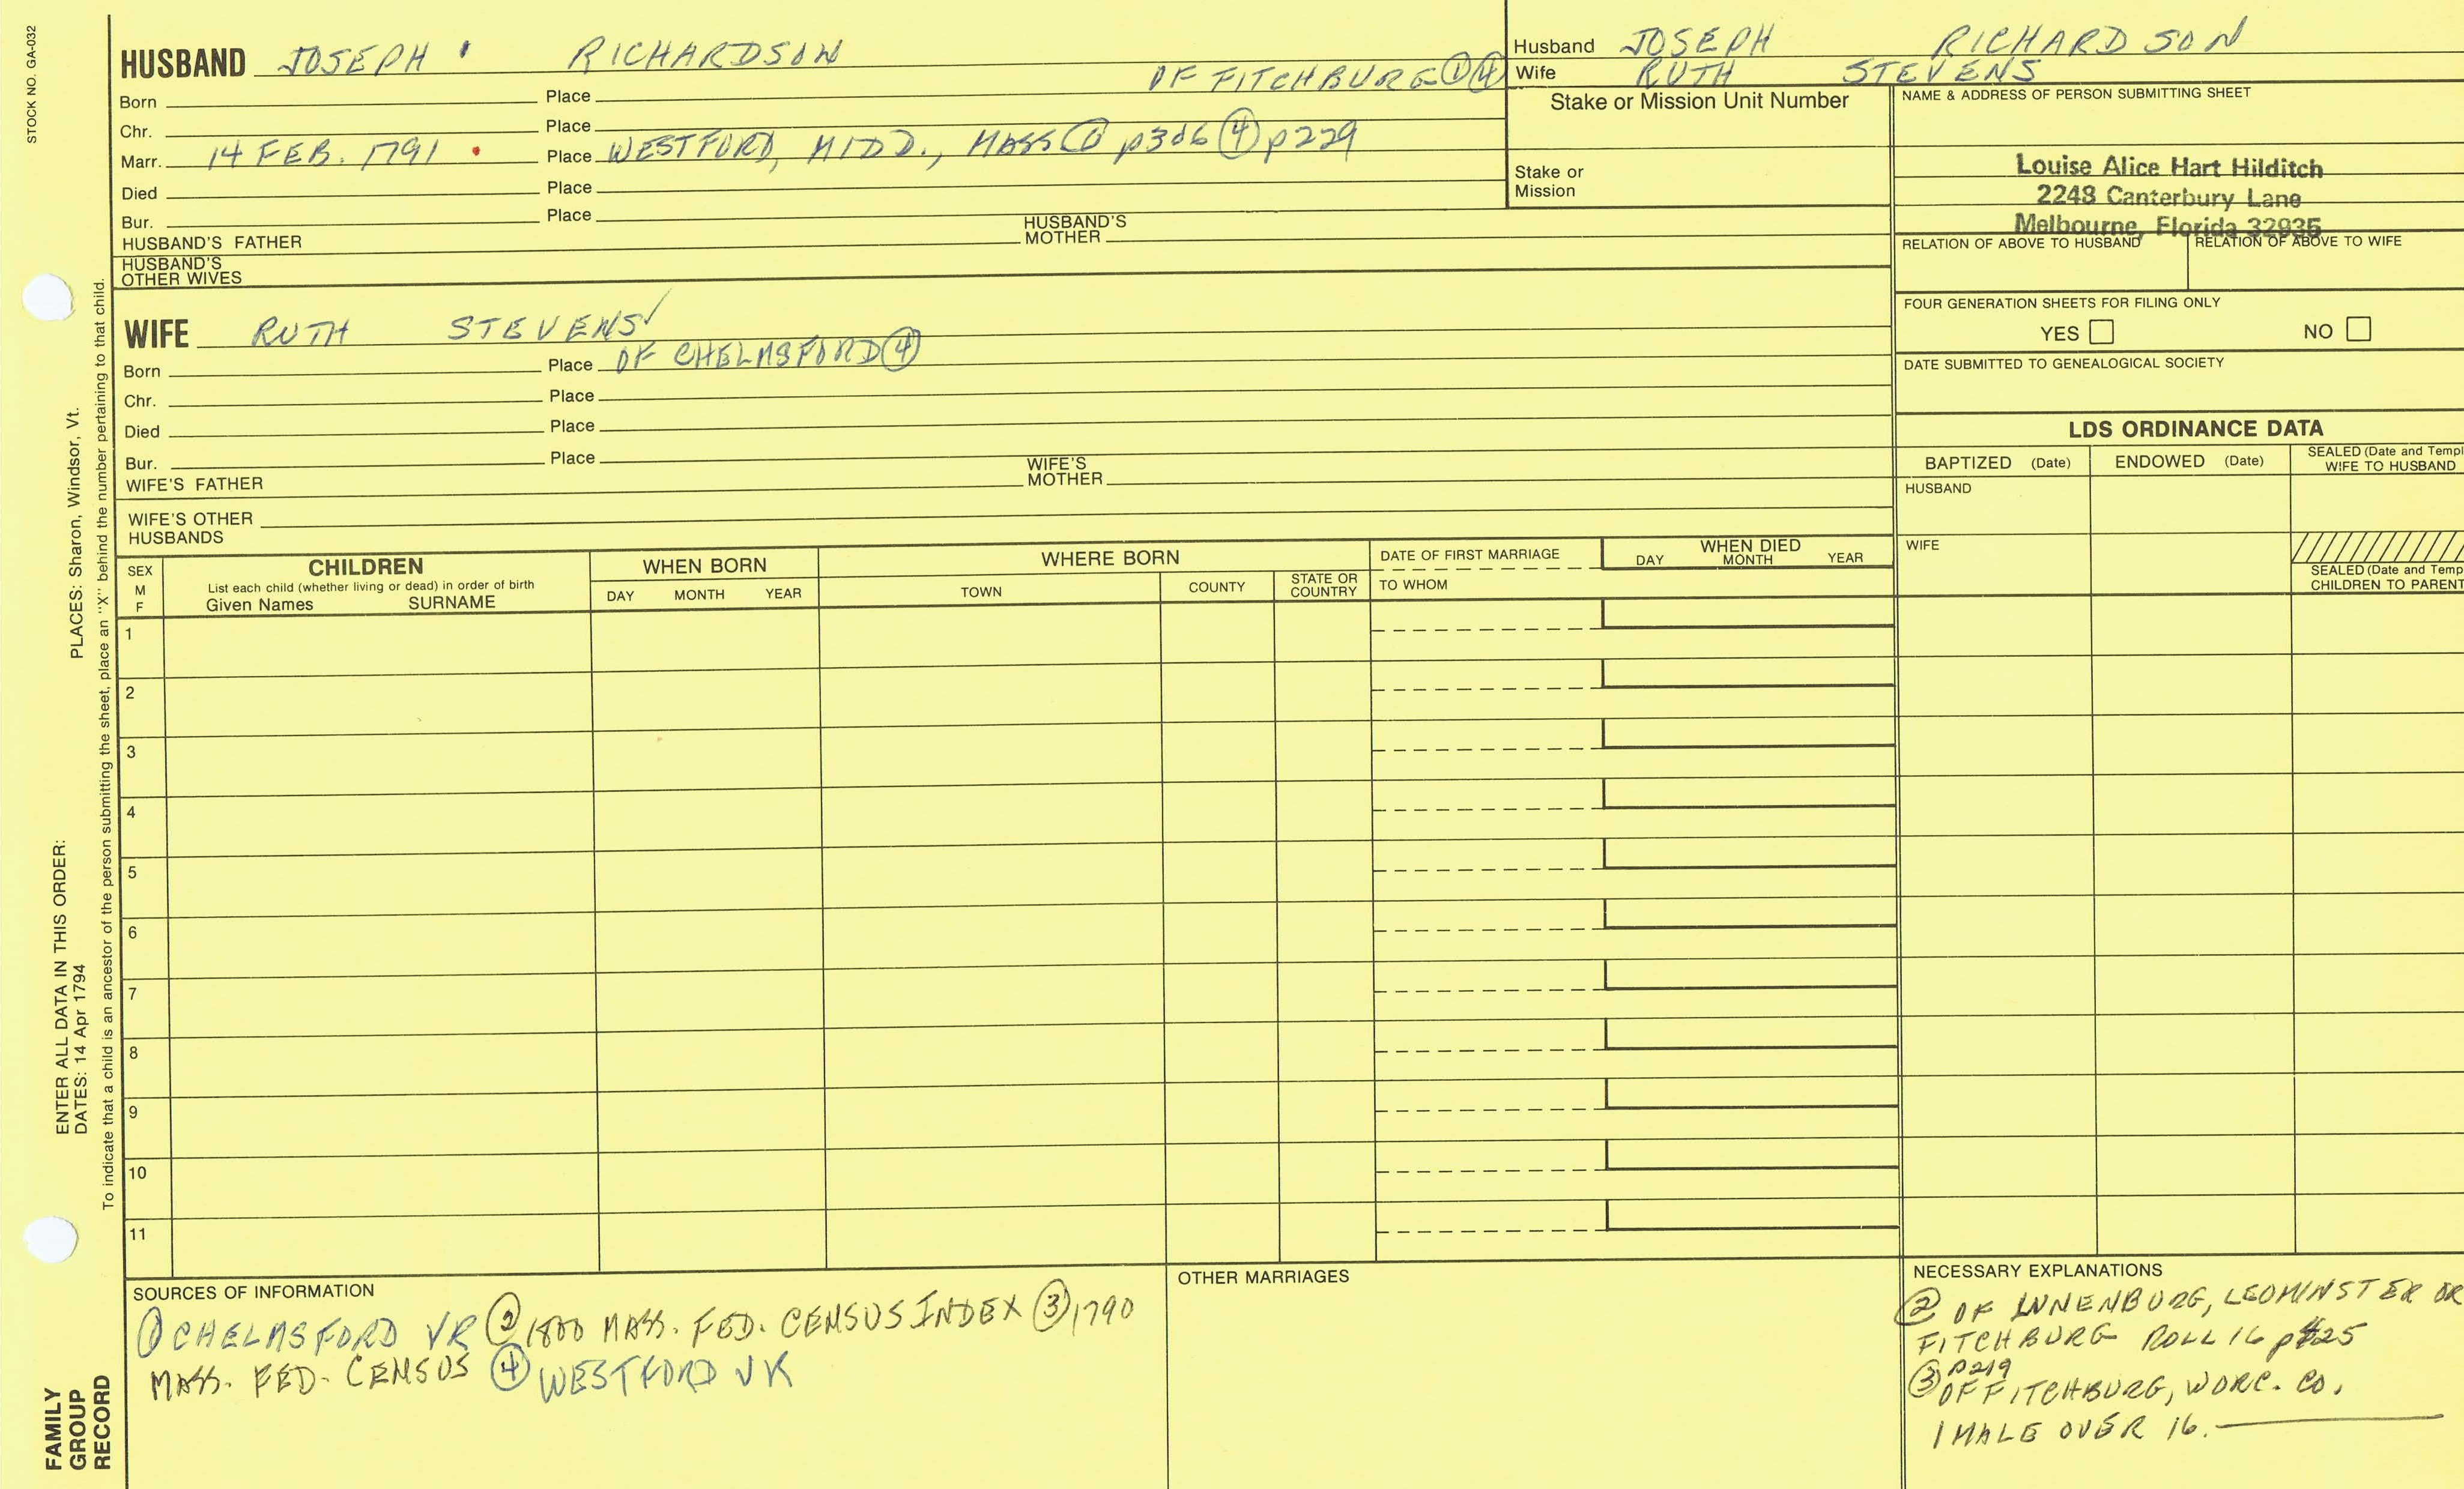 STOCK NO. GA-032
HUSBAND JOSEPH RICHARDSON
OF FITCHBURG ① ④
Born Place
Chr. Place
Marr. 14 FEB. 1791 Place WESTFORD, MIDD., MASS ① p306 ④ p229
Died Place
Bur. Place
HUSBAND'S FATHER HUSBAND'S MOTHER
HUSBAND'S OTHER WIVES
WIFE RUTH STEVENS
Born Place OF CHELMSFORD ④
Chr. Place
Died Place
Bur. Place
WIFE'S FATHER WIFE'S MOTHER
WIFE'S OTHER HUSBANDS
Husband JOSEPH RICHARDSON
Wife RUTH STEVENS
Stake or Mission Unit Number
Stake or
Mission
NAME & ADDRESS OF PERSON SUBMITTING SHEET
Louise Alice Hart Hilditch
2248 Canterbury Lane
Melbourne, Florida 32935
RELATION OF ABOVE TO HUSBAND RELATION OF ABOVE TO WIFE
FOUR GENERATION SHEETS FOR FILING ONLY
YES NO
DATE SUBMITTED TO GENEALOGICAL SOCIETY
LDS ORDINANCE DATA
BAPTIZED (Date) ENDOWED (Date) SEALED (Date and Templ
WIFE TO HUSBAND
HUSBAND
WIFE
SEALED (Date and Temp
CHILDREN TO PARENT
SEX
M
F
CHILDREN
List each child (whether living or dead) in order of birth
Given Names SURNAME
WHEN BORN
DAY MONTH YEAR
WHERE BORN
TOWN COUNTY STATE OR COUNTRY
DATE OF FIRST MARRIAGE
TO WHOM
WHEN DIED
DAY MONTH YEAR
1
2
3
4
5
6
7
8
9
10
11
SOURCES OF INFORMATION
① CHELMSFORD VR ② 1800 MASS. FED. CENSUS INDEX ③ 1790
MASS. FED. CENSUS ④ WESTFORD VR
OTHER MARRIAGES
NECESSARY EXPLANATIONS
② OF LUNENBURG, LEOMINSTER OR
FITCHBURG ROLL 16 p 25
③ p219
OF FITCHBURG, WORC. CO.
1 MALE OVER 16.
FAMILY
GROUP
RECORD
ENTER ALL DATA IN THIS ORDER:
DATES: 14 Apr 1794 PLACES: Sharon, Windsor, Vt.
To indicate that a child is an ancestor of the person submitting the sheet, place an "X" behind the number pertaining to that child.